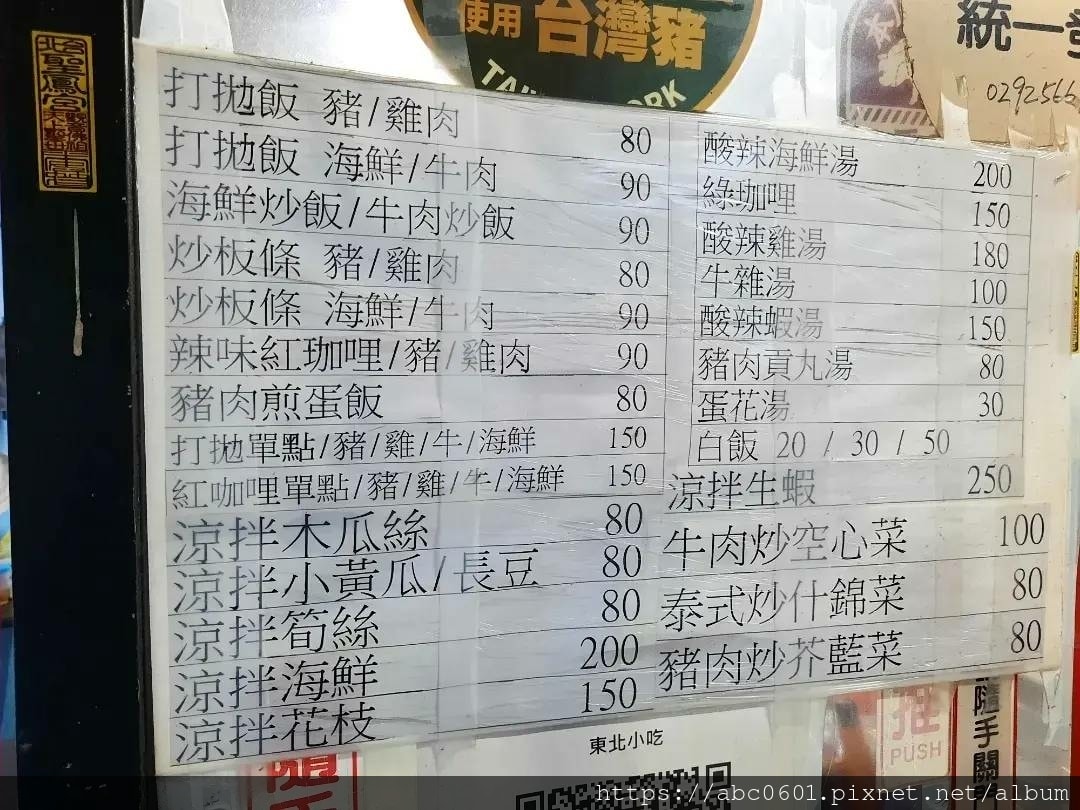 使用 台灣豬
統一發
0292566
打拋飯 豬/雞肉 80
打拋飯 海鮮/牛肉 90
海鮮炒飯/牛肉炒飯 90
炒板條 豬/雞肉 80
炒板條 海鮮/牛肉 90
辣味紅珈哩/豬/雞肉 90
豬肉煎蛋飯 80
打拋單點/豬/雞/牛/海鮮 150
紅咖哩單點/豬/雞/牛/海鮮 150
涼拌木瓜絲 80
涼拌小黃瓜/長豆 80
涼拌筍絲 80
涼拌海鮮 200
涼拌花枝 150
酸辣海鮮湯 200
綠珈哩 150
酸辣雞湯 180
牛雜湯 100
酸辣蝦湯 150
豬肉貢丸湯 80
蛋花湯 30
白飯 20 / 30 / 50
涼拌生蝦 250
牛肉炒空心菜 100
泰式炒什錦菜 80
豬肉炒芥藍菜 80
東北小吃
推
PUSH
隨手關
隨
https://abc0601.pixnet.net/album